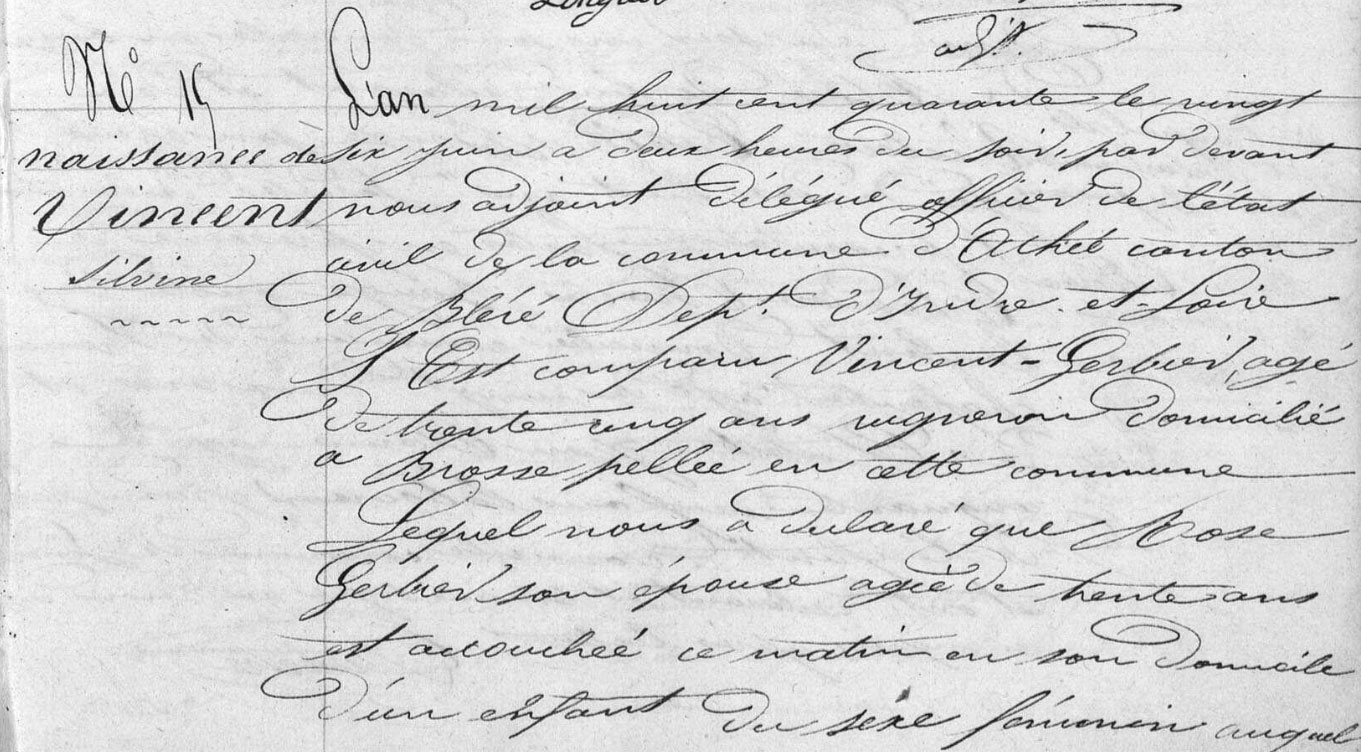 adjt.
N° 15
naissance de
Vincent
Silvine
L'an mil huit cent quarante le vingt
six juin a deux heures du soir, par devant
nous adjoint délégué officier de l'état
civil de la commune d'Athée canton
de Bléré Dept. d'Indre-et-Loire
Est comparu Vincent-Gerbier, agé
de trente cinq ans vigneron domicilié
a Brosse pelleé en cette commune
Lequel nous a déclaré que Rose
Gerbier son épouse ageé de trente ans
est accoucheé ce matin en son domicile
d'un enfant du sexe féminin auquel